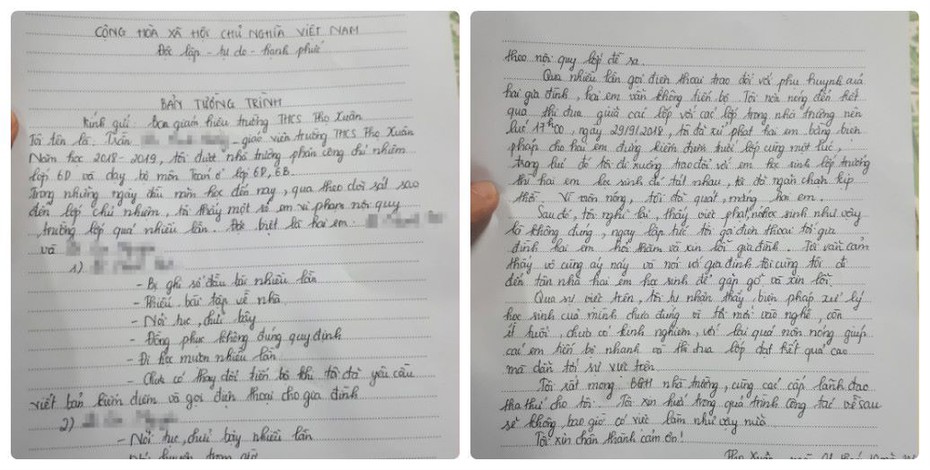 CỘNG HÒA XÃ HỘI CHỦ NGHĨA VIỆT NAM
Độc lập - tự do - hạnh phúc
BẢN TƯỜNG TRÌNH
Kính gửi: Ban giám hiệu trường THCS Thọ Xuân
Tôi tên là: Trần - giáo viên trường THCS Thọ Xuân
Năm học 2018 - 2019, tôi được nhà trường phân công chủ nhiệm
lớp 6D và dạy bộ môn Toán ở lớp 6D, 6B.
Trong những ngày đầu năm học đến nay, qua theo dõi sát sao
đến lớp chủ nhiệm, tôi thấy một số em vi phạm nội quy
trường lớp quá nhiều lần. Đặc biệt là hai em:
và
1)
- Bị ghi sổ đầu bài nhiều lần
- Thiếu bài tập về nhà
- Nói tục, chửi bậy
- Đồng phục không đúng quy định
- Đi học muộn nhiều lần
- Chưa có thay đổi tiến bộ khi tôi đã yêu cầu
viết bản kiểm điểm và gọi điện thoại cho gia đình
2)
- Nói tục, chửi bậy nhiều lần
theo nội quy lớp đề ra.
Qua nhiều lần gọi điện thoại trao đổi với phụ huynh của
hai gia đình, hai em vẫn không tiến bộ. Tôi nôn nóng đến kết
quả thi đua giữa các lớp với các lớp trong nhà trường nên
lúc 17h00, ngày 29/9/2018, tôi đã xử phạt hai em bằng biện
pháp cho hai em đứng kiểm điểm trước lớp cùng một lúc,
trong lúc đó tôi đi xuống trao đổi với em học sinh lớp trưởng
thì hai em học sinh đó tát nhau, tôi đã ngăn chặn kịp
thời. Vì nôn nóng, tôi đã quát, mắng hai em.
Sau đó, tôi nghĩ lại, thấy việc phạt học sinh như vậy
là không đúng, ngay lập tức tôi gọi điện thoại tới gia
đình hai em hỏi thăm và xin lỗi gia đình. Tôi vẫn cảm
thấy vô cùng áy náy và nói với gia đình tôi cùng tôi đi
đến tận nhà hai em học sinh để gặp gỡ và xin lỗi.
Qua sự việc trên, tôi tự nhận thấy biện pháp xử lý
học sinh của mình chưa đúng vì tôi mới vào nghề, còn
ít tuổi, chưa có kinh nghiệm, với lại quá nôn nóng giúp
các em tiến bộ nhanh và thi đua lớp đạt kết quả cao
mà dẫn tới sự việc trên.
Tôi rất mong BGH nhà trường, cùng các cấp lãnh đạo
tha thứ cho tôi. Tôi xin hứa trong quá trình công tác về sau
sẽ không bao giờ có việc làm như vậy nữa.
Tôi xin chân thành cảm ơn!
Thọ Xuân, ngày 01 tháng 10